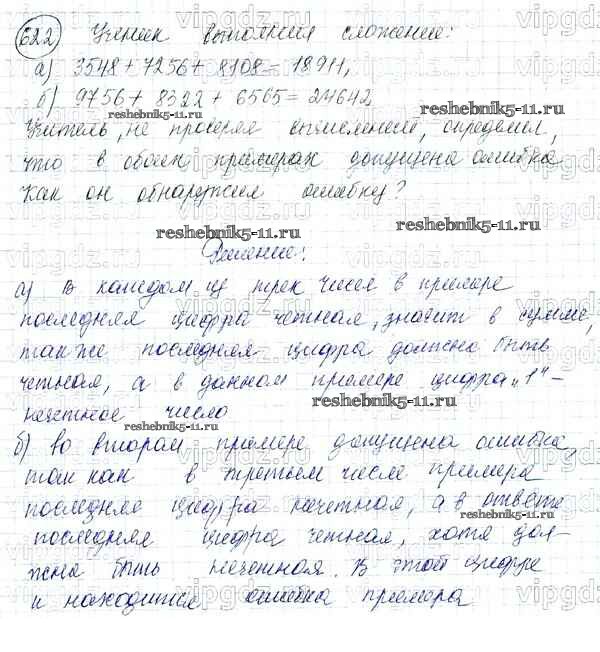 622 Ученик выполнил сложение:
а) 3548 + 7256 + 8108 = 18911,
б) 9756 + 8322 + 6565 = 24642
reshebnik5-11.ru
Учитель, не проверяя вычислений, определил,
что в обоих примерах допущена ошибка.
Как он обнаружил ошибку?
reshebnik5-11.ru
reshebnik5-11.ru
Решение:
а) в каждом из трех чисел в примере
последняя цифра четная, значит в сумме,
также последняя цифра должна быть
четная, а в данном примере цифра „1“ -
нечетное число
reshebnik5-11.ru
reshebnik5-11.ru
б) во втором примере допущена ошибка,
так как в третьем числе примера
последняя цифра нечетная, а в ответе
reshebnik5-11.ru
последняя цифра четная, хотя дол-
жна быть нечетная. В этой цифре
и находится ошибка примера
reshebnik5-11.ru
vipgdz.ru